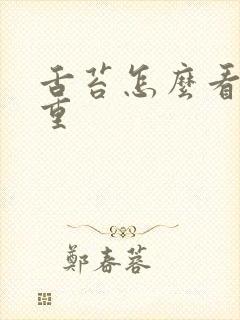 舌苔怎麼看
重
鄭春蓉